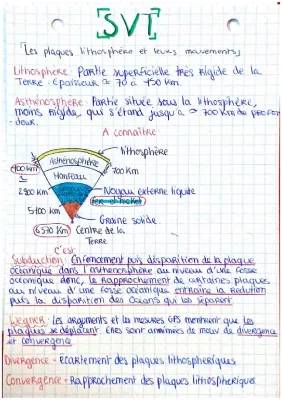 [SVT]
[Les plaques lithosphère et leurs mouvements]
Lithosphère: Partie superficielle très rigide de la
Terre. épaisseur ≃ 70 à 150 km.
Asthénosphère: Partie située sous la lithosphère,
moins rigide, qui s'étend jusqu'à ≃ 700 km de profon
-deur.
A connaître
lithosphère
100 km
Asthénosphère
700 km
Manteau
2900 km
Noyau externe liquide
5100 km
Graine solide
6370 km
Centre de la
Terre
c'est
Subduction: Enfoncement puis disparition de la plaque
océanique dans l'asthénosphère au niveau d'une fosse
océanique donc, le rapprochement de certaines plaques
au niveau d'une fosse océanique entraîne la réduction
puis la disparition des océans qui les séparent
Wegner: Les arguments et les mesures GPS montrent que les
plaques se déplacent. Elles sont animées de mouv de divergence
et convergence
Divergence - Ecartement des plaques lithosphériques
Convergence - Rapprochement des plaques lithosphériques